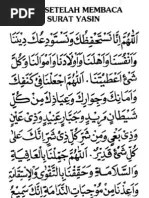 SETELAH MEMBACA
SURAT YASIN
اَللّٰهُمَّ اِنَّا نَسْتَحْفِظُكَ وَنَسْتَوْدِعُكَ دِيْنَنَا
وَاَنْفُسَنَا وَاَهْلَنَا وَاَوْلَادَنَا وَاَمْوَالَنَا وَكُلَّ
شَيْءٍ اَعْطَيْتَنَا. اَللّٰهُمَّ اجْعَلْنَا فِيْ كَنَفِكَ
وَاَمَانِكَ وَجِوَارِكَ وَعِيَاذِكَ مِنْ كُلِّ
شَيْطَانٍ مَرِيْدٍ وَجَبَّارٍ عَنِيْدٍ وَذِيْ عَيْنٍ
وَذِيْ بَغْيٍ وَمِنْ شَرِّ كُلِّ ذِيْ شَرٍّ اِنَّكَ عَلَى
كُلِّ شَيْءٍ قَدِيْرٌ. اَللّٰهُمَّ جَمِّلْنَا بِالْعَافِيَةِ
وَالسَّلَامَةِ وَحَقِّقْنَا بِالتَّقْوَى وَالْاِسْتِقَامَةِ
وَاَعِذْنَا مِنْ مُوْجِبَاتِ النَّدَامَةِ اِنَّكَ سَمِيْعُ